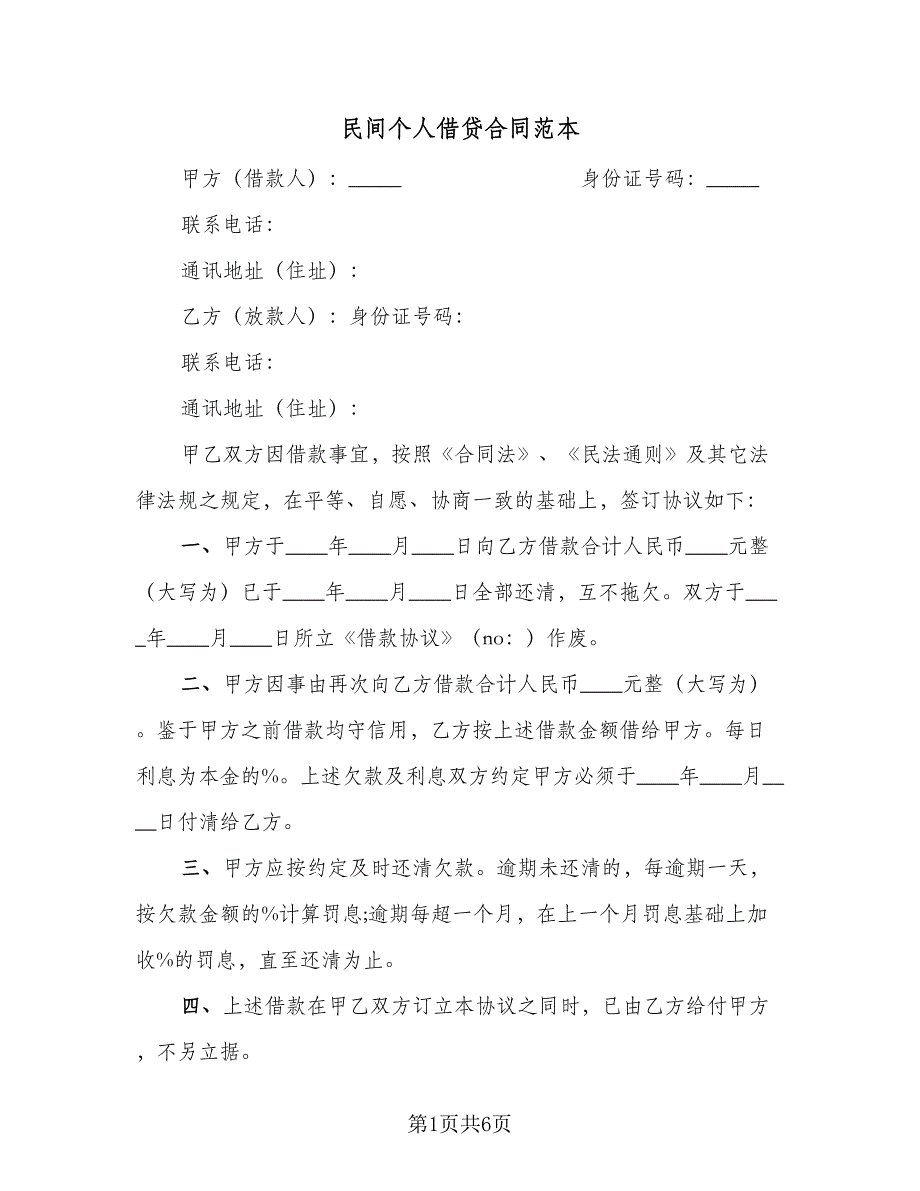 民间个人借贷合同范本
甲方（借款人）：_____ 身份证号码：_____
联系电话：
通讯地址（住址）：
乙方（放款人）：身份证号码：
联系电话：
通讯地址（住址）：
甲乙双方因借款事宜，按照《合同法》、《民法通则》及其它法
律法规之规定，在平等、自愿、协商一致的基础上，签订协议如下：
一、甲方于____年____月____日向乙方借款合计人民币____元整
（大写为）已于____年____月____日全部还清，互不拖欠。双方于___
_年____月____日所立《借款协议》（no：）作废。
二、甲方因事由再次向乙方借款合计人民币____元整（大写为）
。鉴于甲方之前借款均守信用，乙方按上述借款金额借给甲方。每日
利息为本金的%。上述欠款及利息双方约定甲方必须于____年____月__
__日付清给乙方。
三、甲方应按约定及时还清欠款。逾期未还清的，每逾期一天，
按欠款金额的%计算罚息;逾期每超一个月，在上一个月罚息基础上加
收%的罚息，直至还清为止。
四、上述借款在甲乙双方订立本协议之同时，已由乙方给付甲方
，不另立据。
第1页共6页